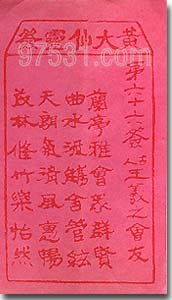 黃大仙靈簽
97531.com
第六十六簽 王羲之會友
蘭亭雅會群賢
曲水流觴管絃
天朗氣清風惠暢
茂林修竹樂怡然